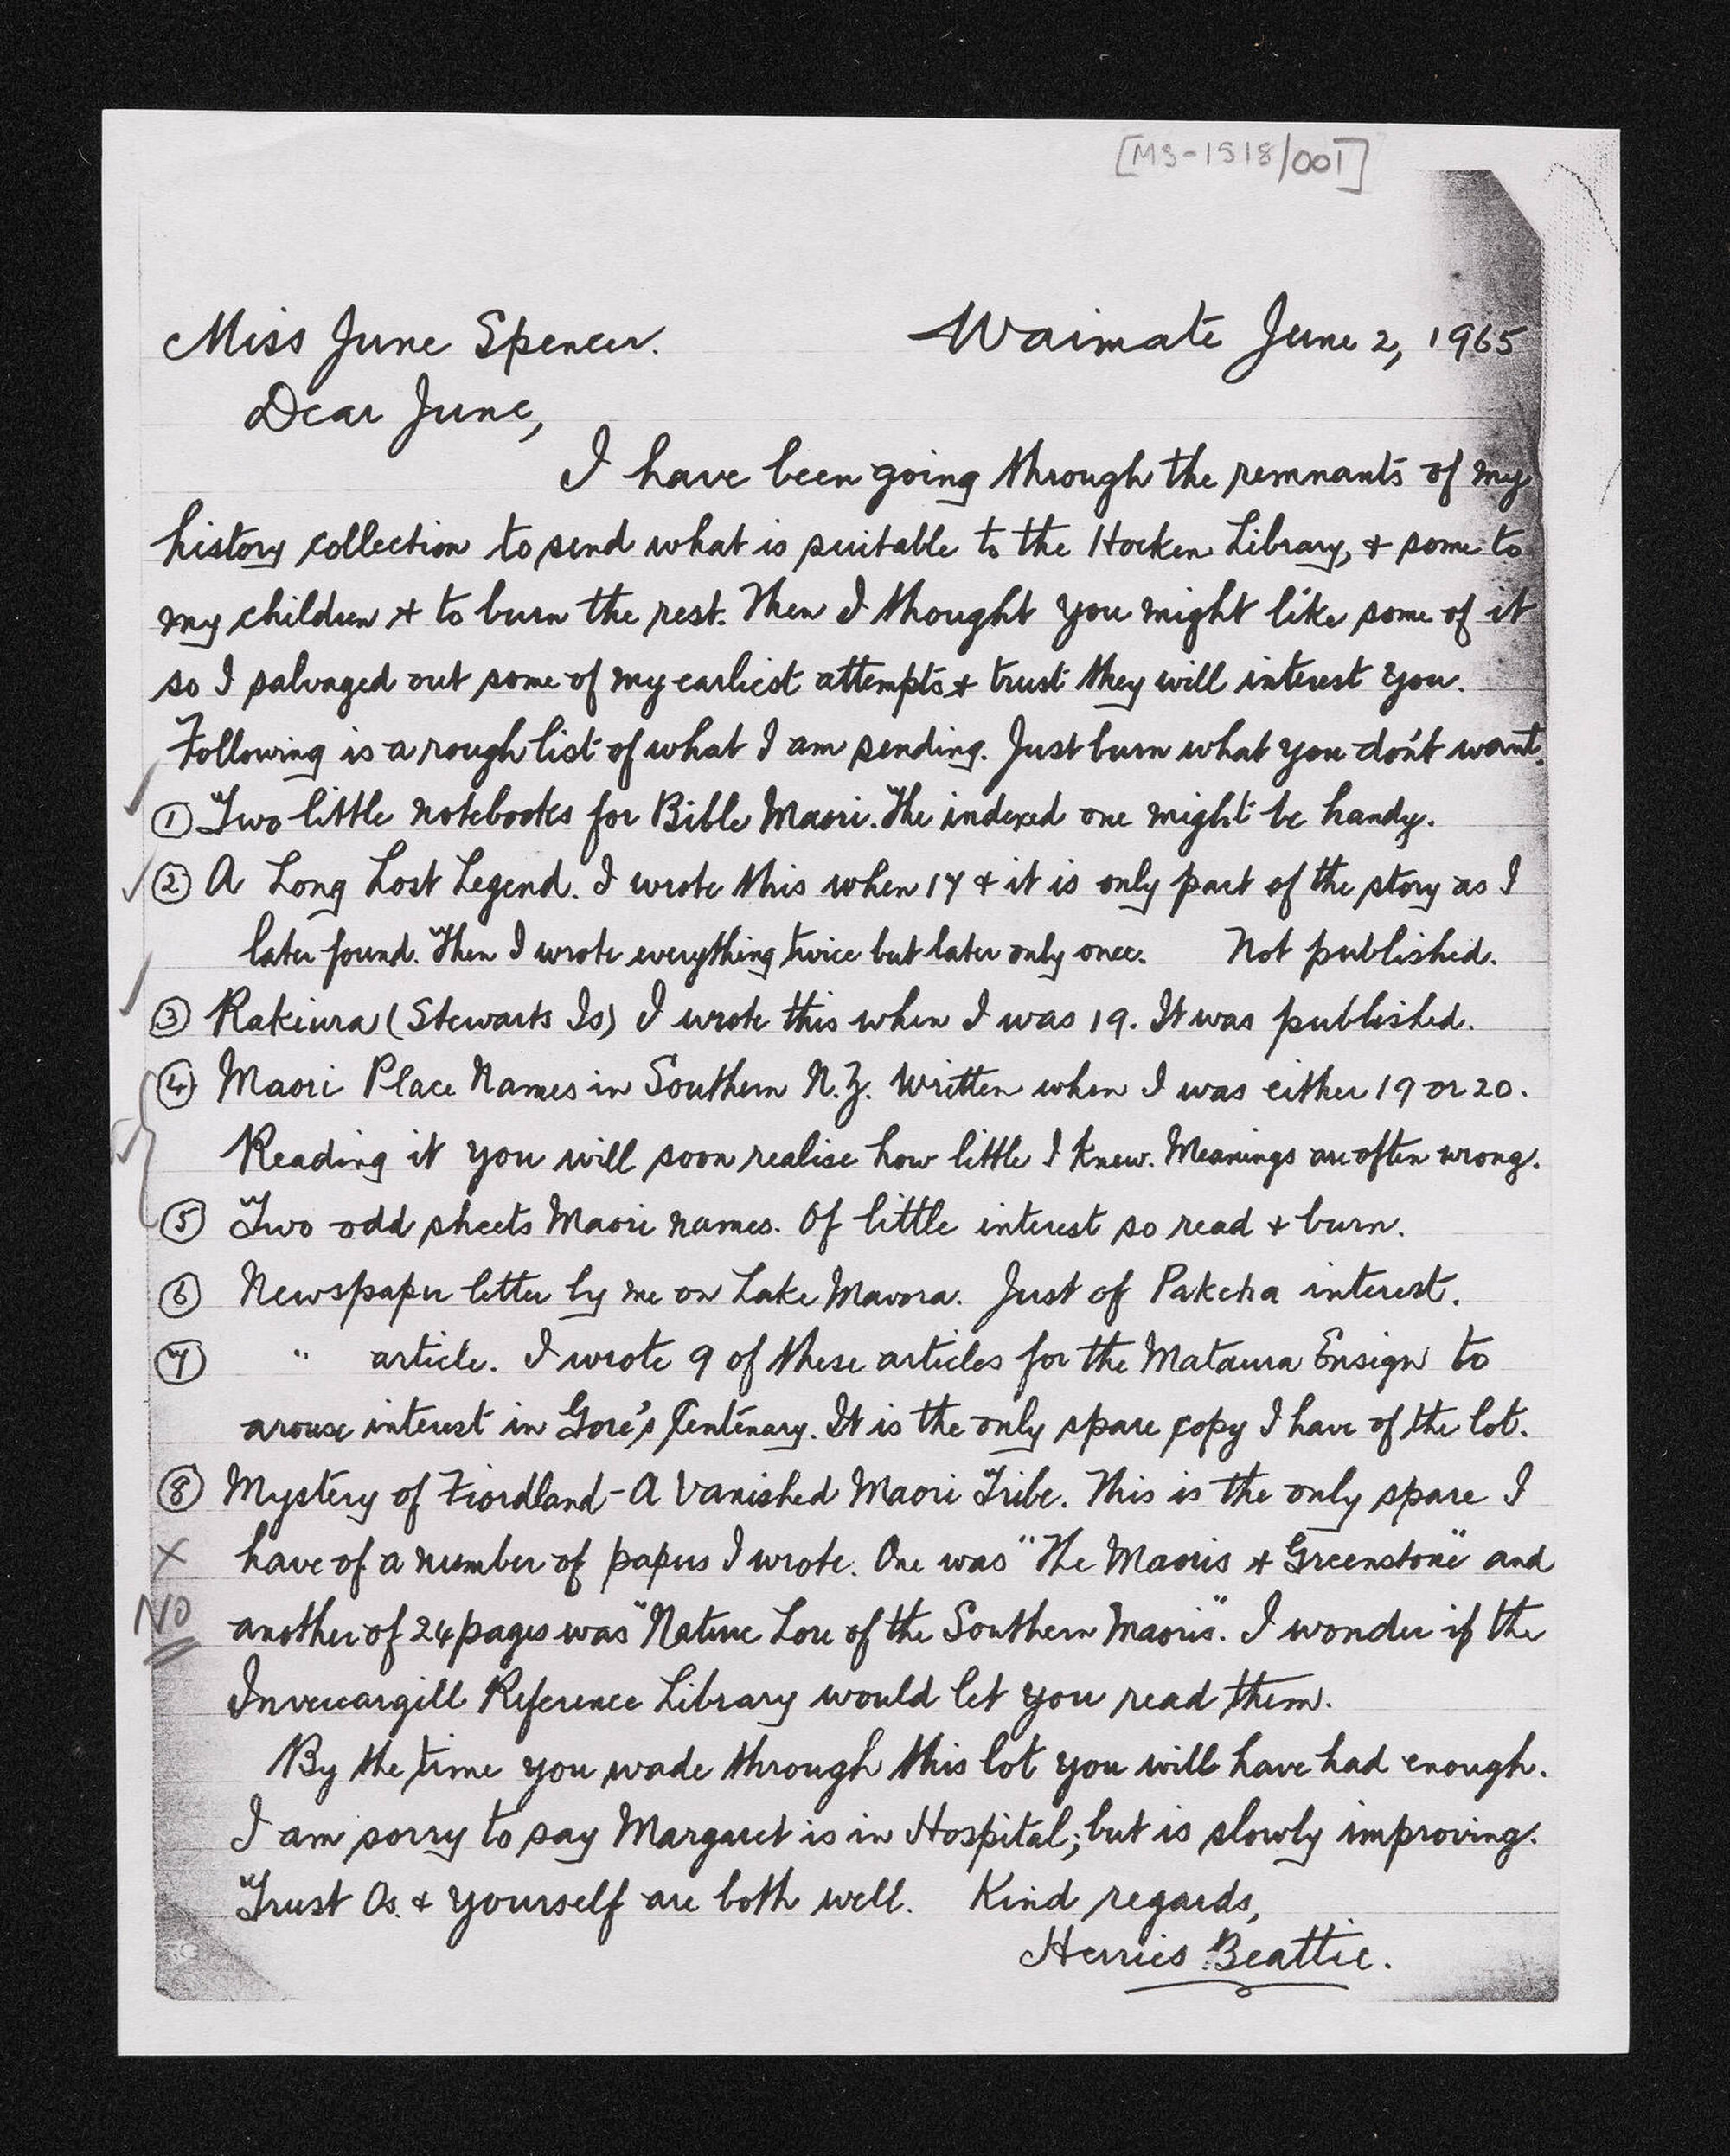 [MS-1518/001]
Miss June Spencer. Waimate June 2, 1965
Dear June,
I have been going through the remnants of my
history collection to send what is suitable to the Hocken Library, & some to
my children & to burn the rest. Then I thought you might like some of it
so I salvaged out some of my earliest attempts & trust they will interest you.
Following is a rough list of what I am sending. Just burn what you don't want.
① Two little notebooks for Bible Maori. The indexed one might be handy.
② A Long Lost Legend. I wrote this when 17 & it is only part of the story as I
later found. Then I wrote everything twice but later only once. Not published.
③ Rakiura (Stewarts Is) I wrote this when I was 19. It was published.
④ Maori Place Names in Southern N.Z. Written when I was either 19 or 20.
Reading it you will soon realise how little I knew. Meanings are often wrong.
⑤ Two odd sheets Maori names. Of little interest so read & burn.
⑥ Newspaper letter by me on Lake Mavora. Just of Pakeha interest.
⑦ " article. I wrote 9 of these articles for the Mataura Ensign to
arouse interest in Gore's Centenary. It is the only spare copy I have of the lot.
⑧ Mystery of Fiordland - A Vanished Maori Tribe. This is the only spare I
X have of a number of papers I wrote. One was "The Maoris & Greenstone" and
NO another of 24 pages was "Nature Lore of the Southern Maoris". I wonder if the
Invercargill Reference Library would let you read them.
By the time you wade through this lot you will have had enough.
I am sorry to say Margaret is in Hospital; but is slowly improving.
Trust Os. & yourself are both well. Kind regards,
Herries Beattie.